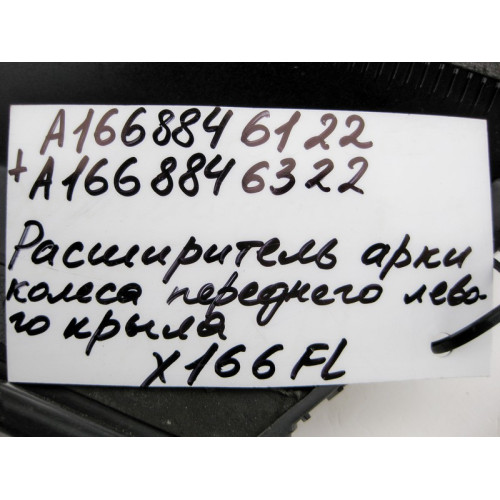 A166884 6122
+A166884 6322
Расширитель арки
колеса переднего лево-
го крыла
X166FL